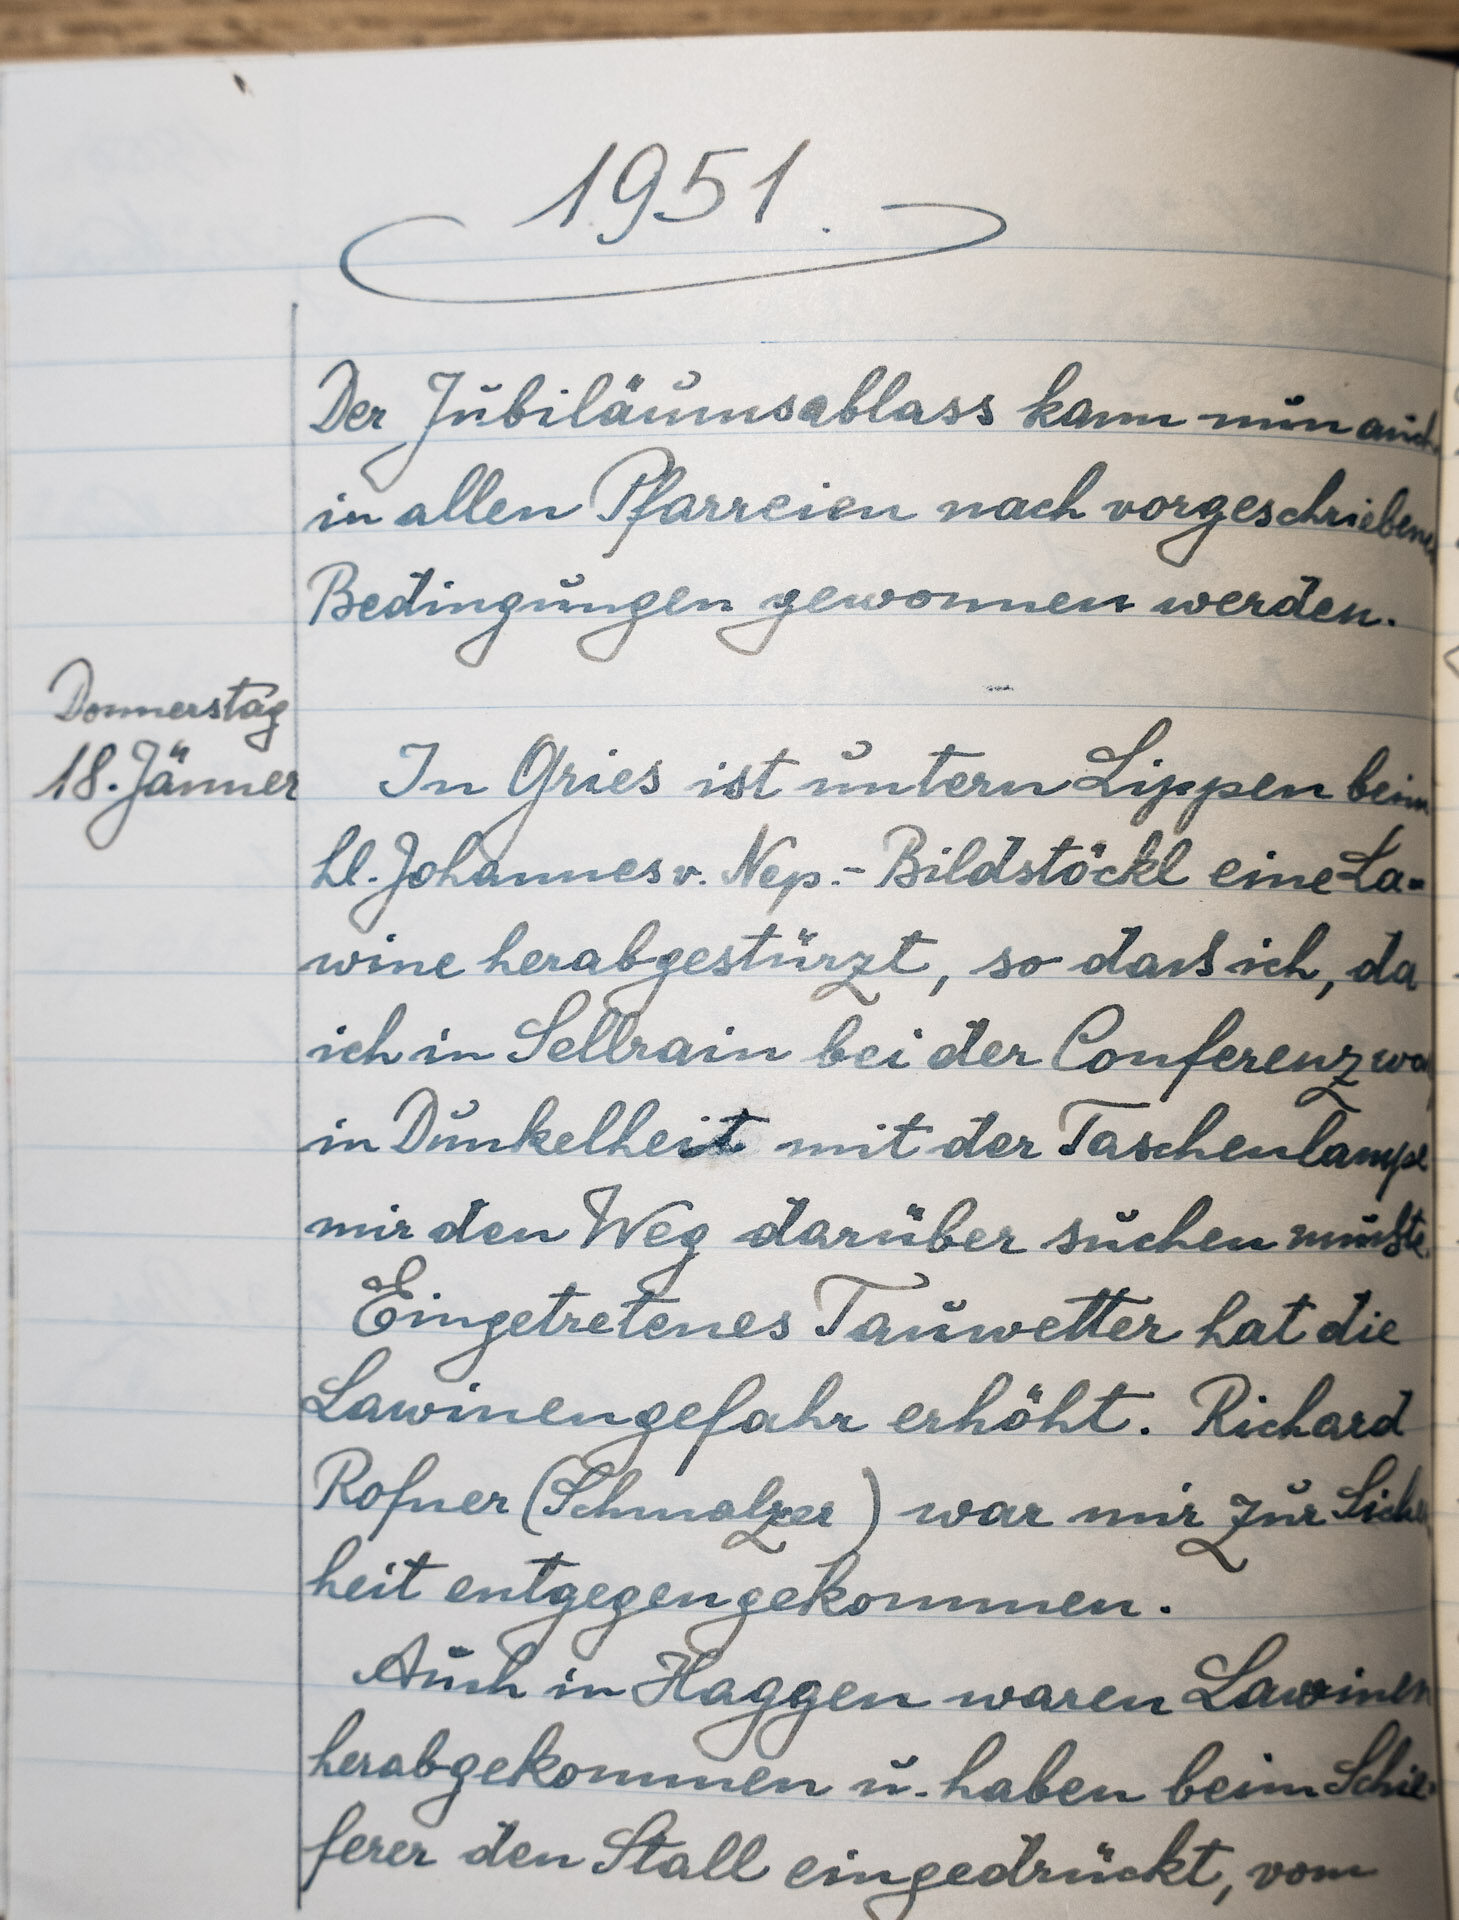 1951.
Der Jubiläumsablass kann nun auch
in allen Pfarreien nach vorgeschriebenen
Bedingungen gewonnen werden.
Donnerstag
18. Jänner
In Gries ist untern Lippen beim
hl. Johannes v. Nep.- Bildstöckl eine La-
wine herabgestürzt, so daß ich, da
ich in Sellrain bei der Conferenz war
in Dunkelheit mit der Taschenlampe
mir den Weg darüber suchen mußte.
Eingetretenes Tauwetter hat die
Lawinengefahr erhöht. Richard
Rofner (Schmalzer) war mir zur Sicher
heit entgegengekommen.
Auch in Haggen waren Lawinen
herabgekommen u. haben beim Schie-
ferer den Stall eingedrückt, vom